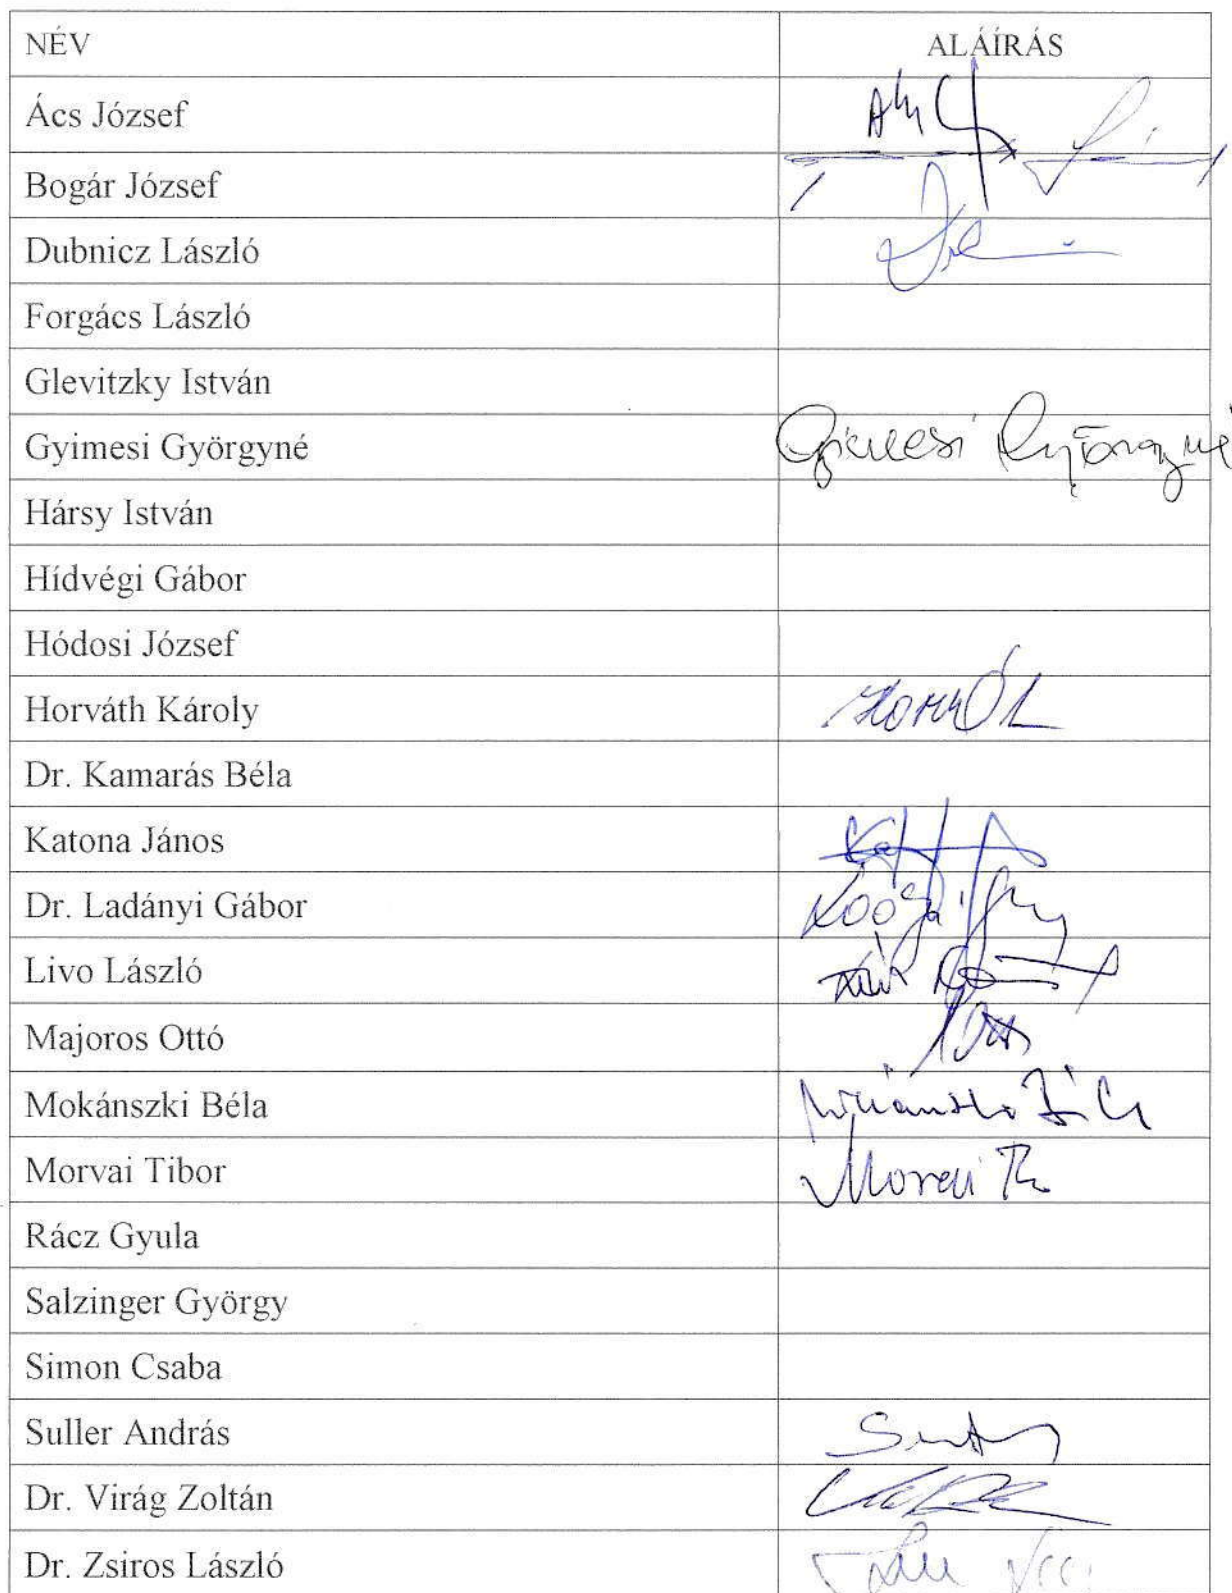 NÉV ALÁÍRÁS
Ács József
Bogár József
Dubnicz László
Forgács László
Glevitzky István
Gyimesi Györgyné Gyimesi Györgyné
Hársy István
Hídvégi Gábor
Hódosi József
Horváth Károly
Dr. Kamarás Béla
Katona János
Dr. Ladányi Gábor
Livo László
Majoros Ottó
Mokánszki Béla
Morvai Tibor
Rácz Gyula
Salzinger György
Simon Csaba
Suller András
Dr. Virág Zoltán
Dr. Zsiros László